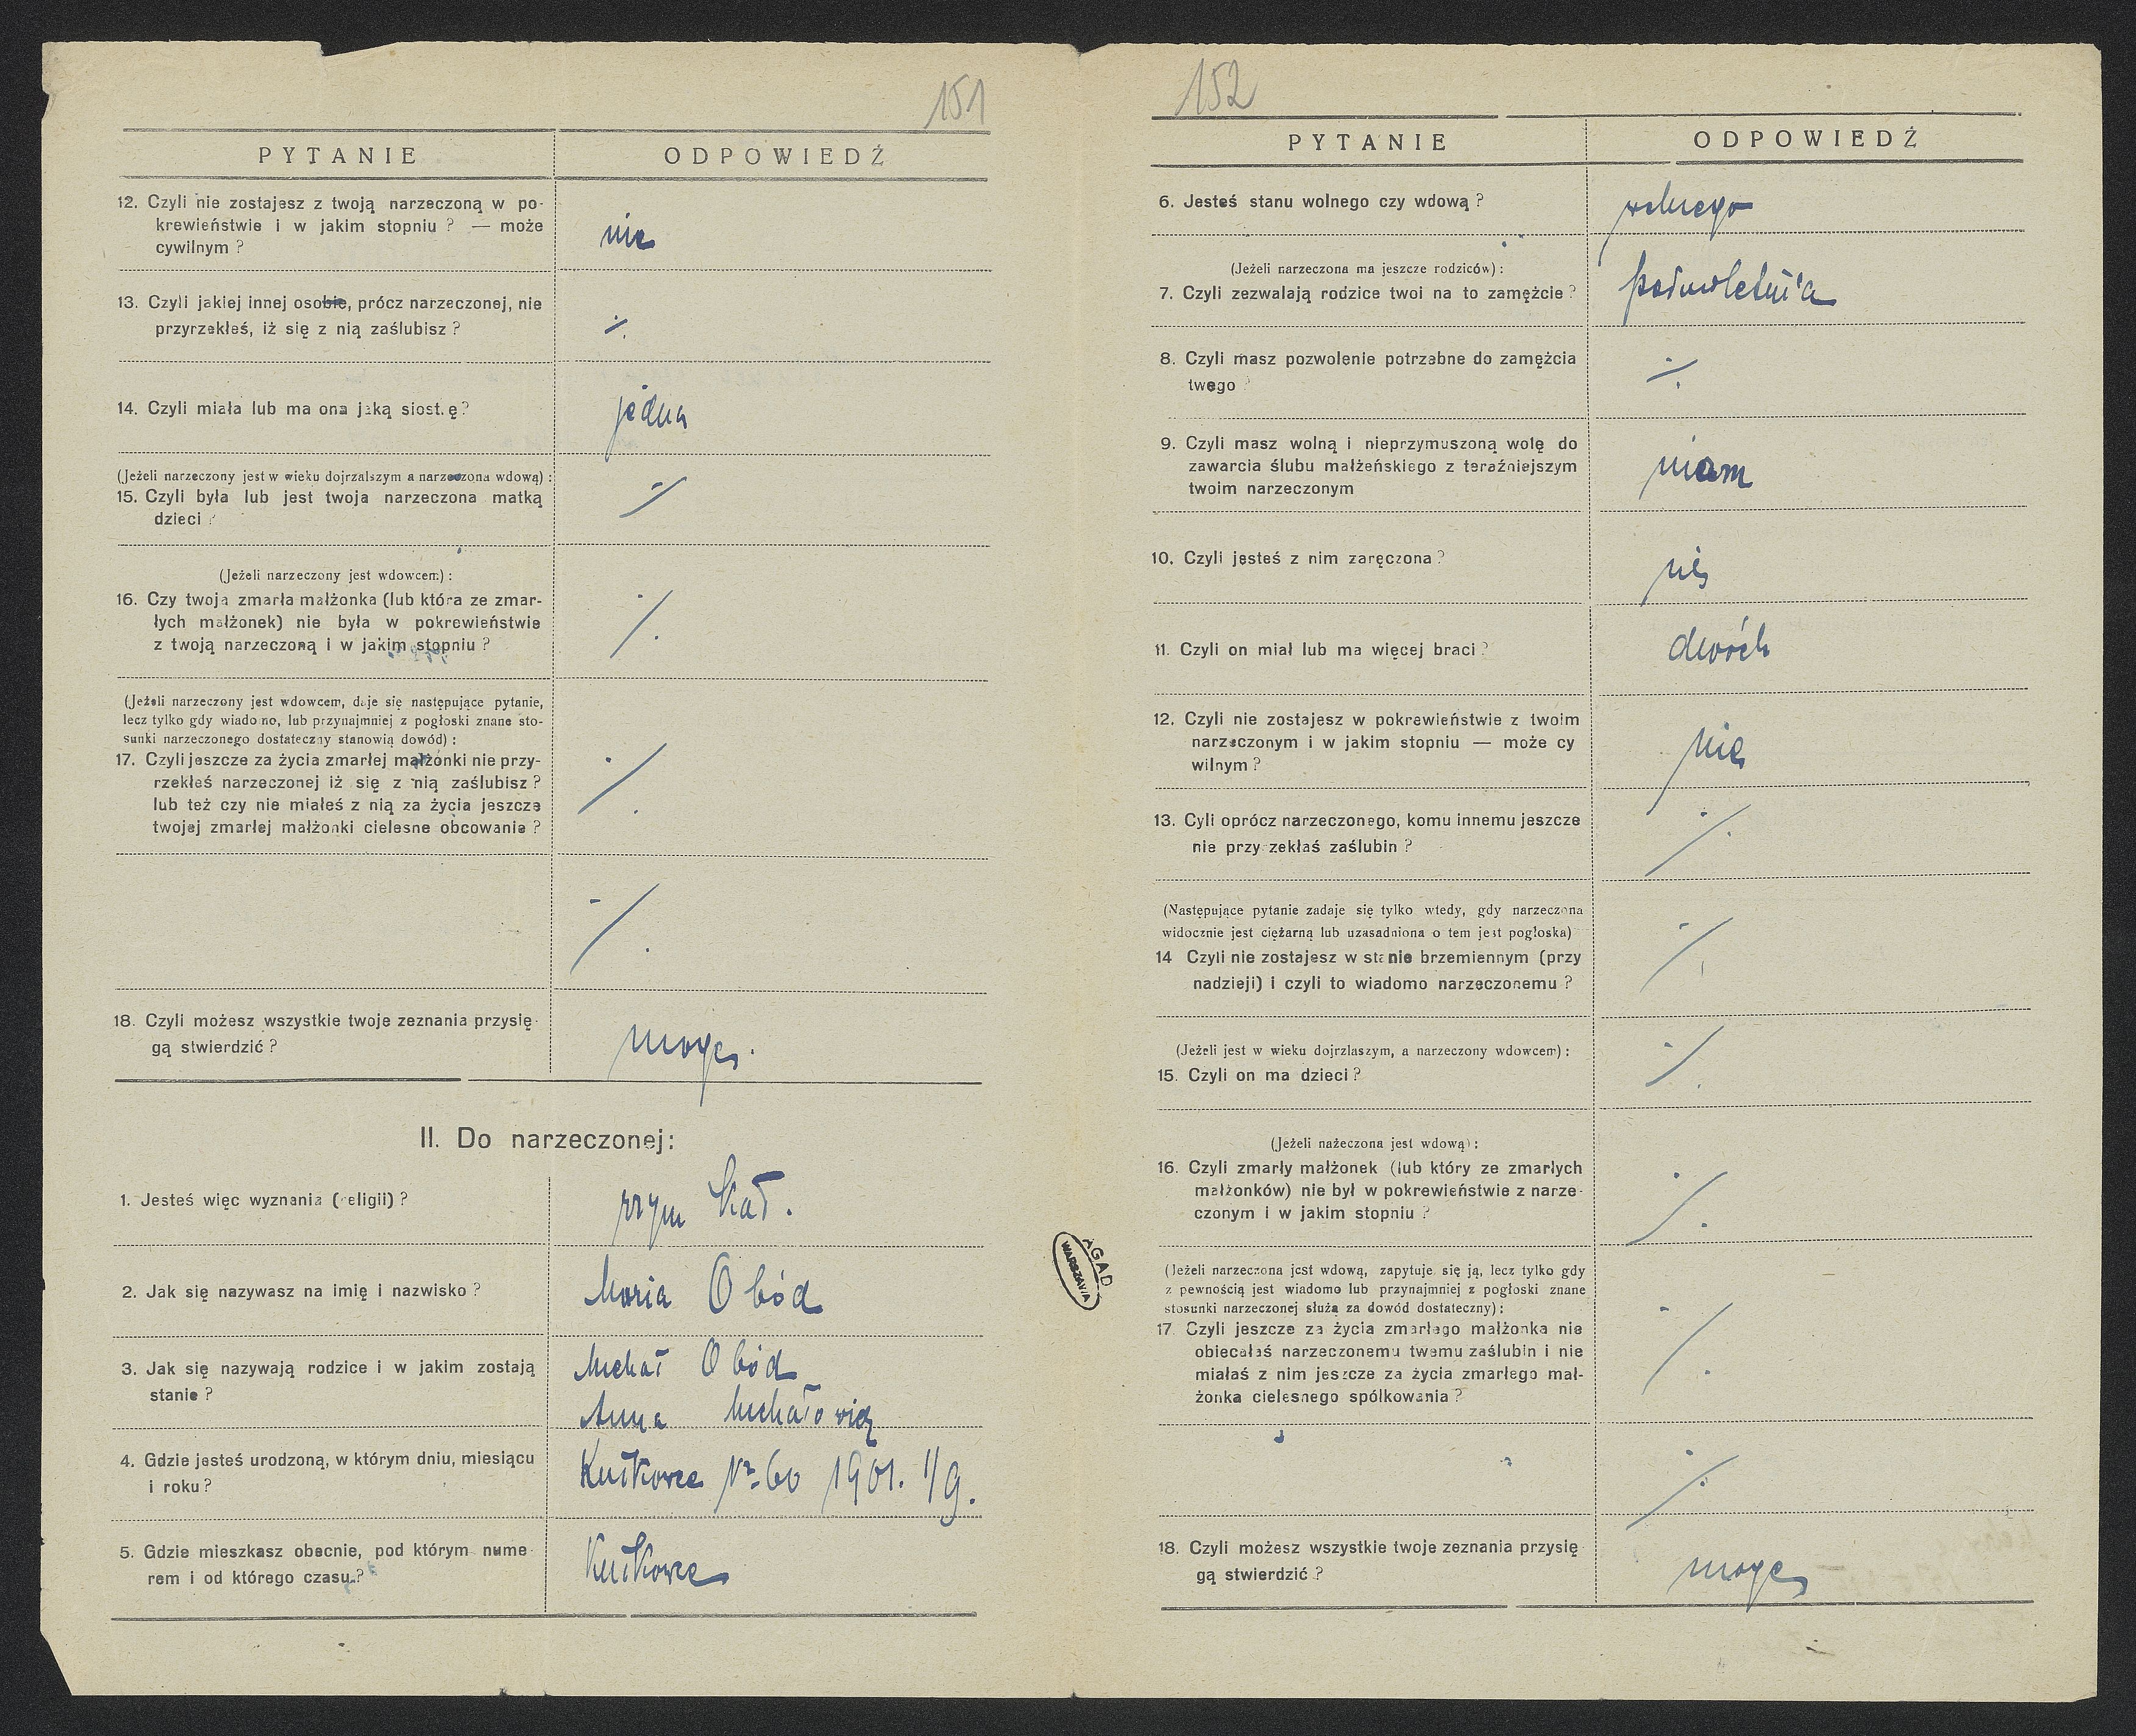 151
PYTANIE
ODPOWIEDŹ
12. Czyli nie zostajesz z twoją narzeczoną w po-
krewieństwie i w jakim stopniu? — może
cywilnym?
nie
13. Czyli jakiej innej osobie, prócz narzeczonej, nie
przyrzekłeś, iż się z nią zaślubisz?
⁒
14. Czyli miała lub ma ona jaką siost.ę?
jedna
(Jeżeli narzeczony jest w wieku dojrzalszym a narzeczona wdową):
15. Czyli była lub jest twoja narzeczona matką
dzieci?
⁒
(Jeżeli narzeczony jest wdowcem):
16. Czy twoja zmarła małżonka (lub która ze zmar-
łych małżonek) nie była w pokrewieństwie
z twoją narzeczoną i w jakim stopniu?
⁒
(Jeżeli narzeczony jest wdowcem, daje się następujące pytanie,
lecz tylko gdy wiadomo, lub przynajmniej z pogłoski znane sto-
sunki narzeczonego dostateczny stanowią dowód):
17. Czyli jeszcze za życia zmarłej małżonki nie przy-
rzekłeś narzeczonej iż się z nią zaślubisz?
lub też czy nie miałeś z nią za życia jeszcze
twojej zmarłej małżonki cielesne obcowanie?
⁒
⁒
18. Czyli możesz wszystkie twoje zeznania przysię-
gą stwierdzić?
mogę.
II. Do narzeczonej:
1. Jesteś więc wyznania (religii)?
rzym kat.
2. Jak się nazywasz na imię i nazwisko?
Maria Obód
3. Jak się nazywają rodzice i w jakim zostają
stanie?
Michał Obód
Anna Michałowicz
4. Gdzie jesteś urodzoną, w którym dniu, miesiącu
i roku?
Kutkowce Nr 60 1901. 1/9.
5. Gdzie mieszkasz obecnie, pod którym nume-
rem i od którego czasu?
Kutkowce
AGAD
WARSZAWA
152
PYTANIE
ODPOWIEDŹ
6. Jesteś stanu wolnego czy wdową?
wolnego
(Jeżeli narzeczona ma jeszcze rodziców):
7. Czyli zezwalają rodzice twoi na to zamężcie?
pełnoletnia
8. Czyli masz pozwolenie potrzebne do zamężcia
twego?
⁒
9. Czyli masz wolną i nieprzymuszoną wolę do
zawarcia ślubu małżeńskiego z teraźniejszym
twoim narzeczonym
mam
10. Czyli jesteś z nim zaręczona?
nie
11. Czyli on miał lub ma więcej braci?
dwóch
12. Czyli nie zostajesz w pokrewieństwie z twoim
narzeczonym i w jakim stopniu — może cy
wilnym?
nie
13. Cyli oprócz narzeczonego, komu innemu jeszcze
nie przy zekłaś zaślubin?
⁒
(Następujące pytanie zadaje się tylko wtedy, gdy narzeczona
widocznie jest ciężarną lub uzasadniona o tem jest pogłoska)
14 Czyli nie zostajesz w stanie brzemiennym (przy
nadzieji) i czyli to wiadomo narzeczonemu?
⁒
(Jeżeli jest w wieku dojrzlaszym, a narzeczony wdowcem):
15. Czyli on ma dzieci?
⁒
(Jeżeli nażeczona jest wdową):
16. Czyli zmarły małżonek (lub który ze zmarłych
małżonków) nie był w pokrewieństwie z narze-
czonym i w jakim stopniu?
⁒
(Jeżeli narzeczona jest wdową, zapytuje się ją, lecz tylko gdy
z pewnością jest wiadomo lub przynajmniej z pogłoski znane
stosunki narzeczonej służą za dowód dostateczny):
17. Czyli jeszcze za życia zmarłego małżonka nie
obiecałaś narzeczonemu twemu zaślubin i nie
miałaś z nim jeszcze za życia zmarłego mał-
żonka cielesnego spólkowania?
⁒
⁒
18. Czyli możesz wszystkie twoje zeznania przysię
gą stwierdzić?
mogę